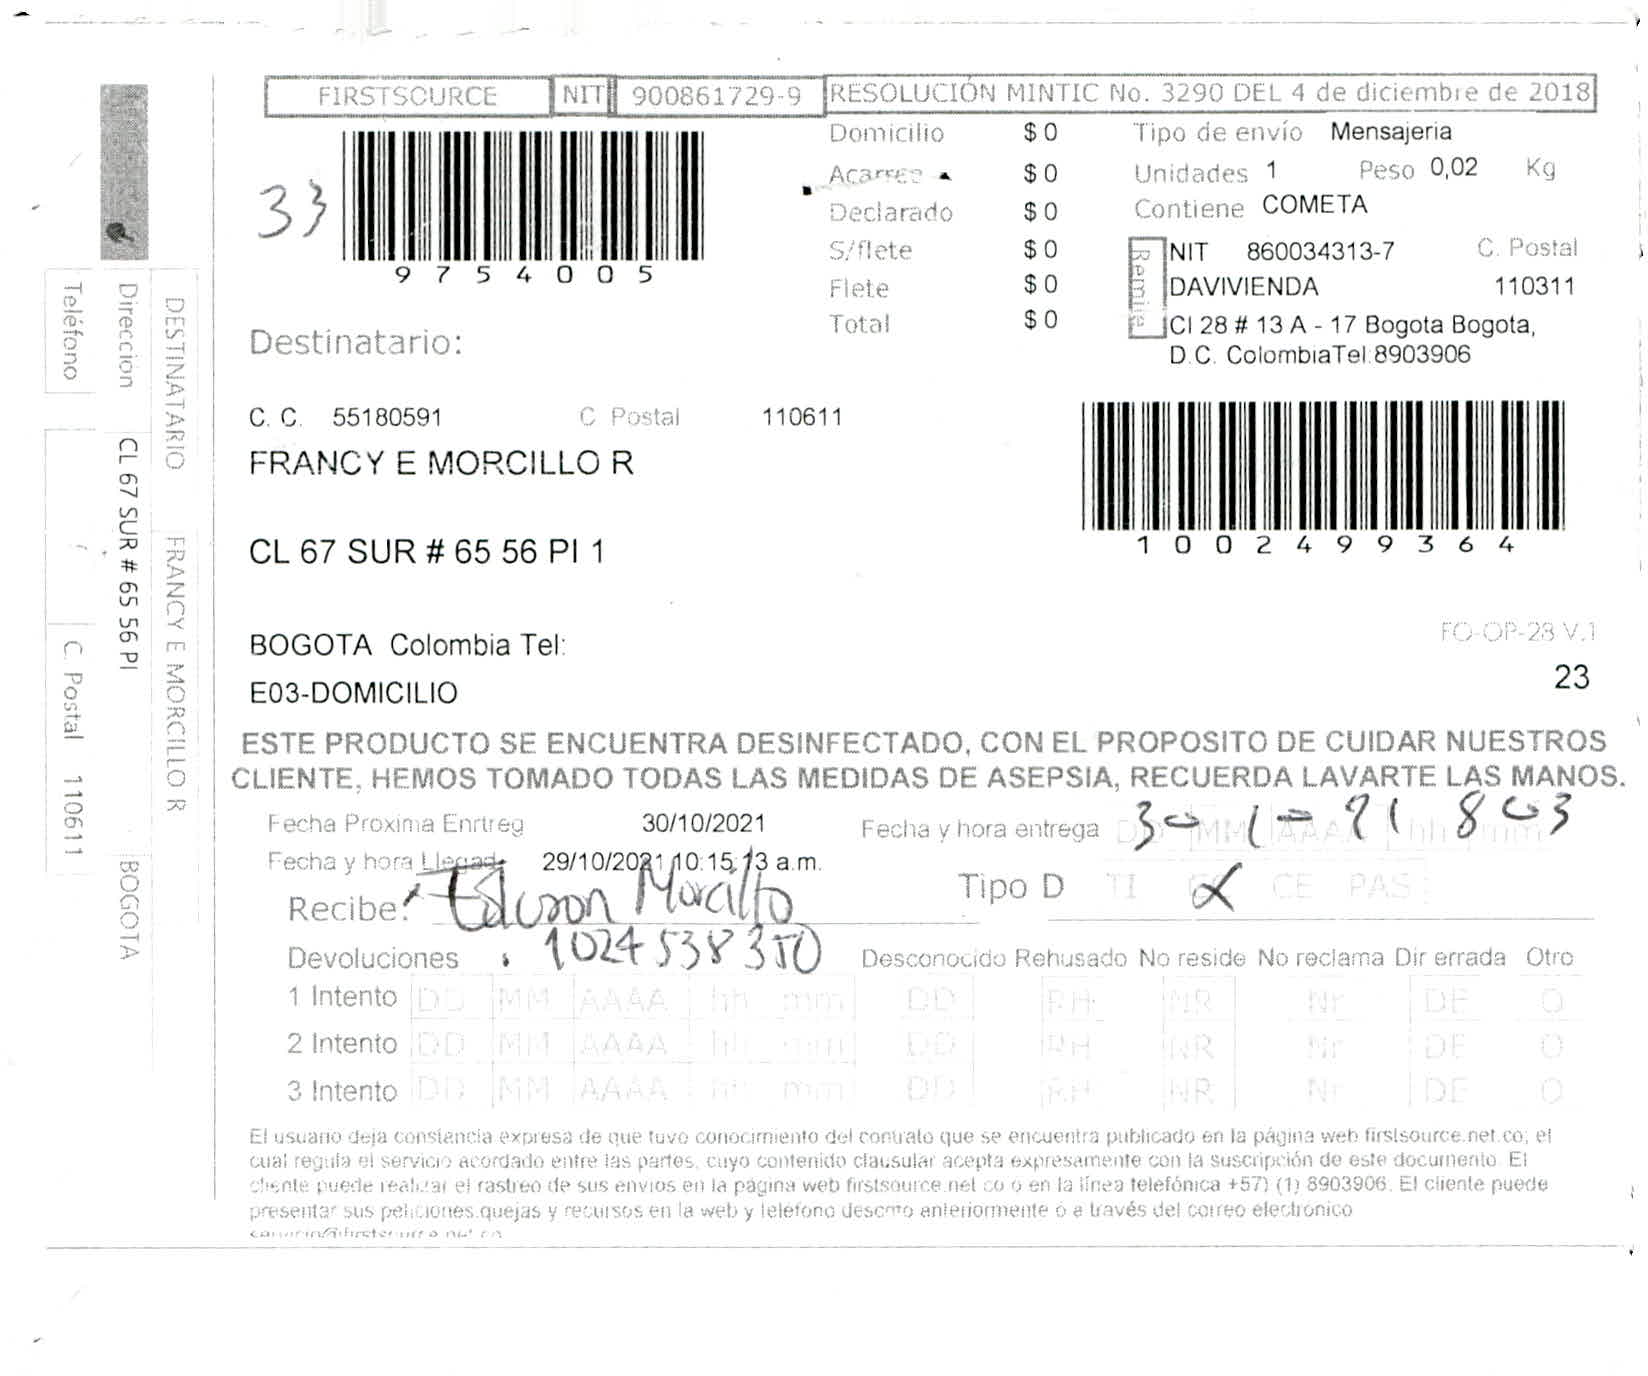 FIRSTSOURCE NIT 900861729-9 RESOLUCIÓN MINTIC No. 3290 DEL 4 de diciembre de 2018
33
9754005
Domicilio $ 0
Acarreo $ 0
Declarado $ 0
S/flete $ 0
Flete $ 0
Total $ 0
Tipo de envío Mensajeria
Unidades 1 Peso 0,02 Kg
Contiene COMETA
Remite
NIT 860034313-7 C. Postal
DAVIVIENDA 110311
Cl 28 # 13 A - 17 Bogota Bogota,
D.C. ColombiaTel:8903906
Destinatario:
C. C. 55180591 C Postal 110611
FRANCY E MORCILLO R
CL 67 SUR # 65 56 PI 1
10024999364
BOGOTA Colombia Tel:
E03-DOMICILIO
FO-OP-28 V.1
23
ESTE PRODUCTO SE ENCUENTRA DESINFECTADO, CON EL PROPOSITO DE CUIDAR NUESTROS
CLIENTE, HEMOS TOMADO TODAS LAS MEDIDAS DE ASEPSIA, RECUERDA LAVARTE LAS MANOS.
Fecha Proxima Enrtreg 30/10/2021
Fecha y hora entrega DD MM AAAA hh mm
Fecha y hora Llegad 29/10/2021 10:15:13 a.m.
Recibe: Morcillo
Tipo D TI CE PAS
1024538350
Devoluciones Desconocido Rehusado No reside No reclama Dir errada Otro
1 Intento DD MM AAAA hh mm DD RH NR Nr DE O
2 Intento DD MM AAAA hh mm DD RH NR Nr DE O
3 Intento DD MM AAAA hh mm DD RH NR Nr DE O
El usuario deja constancia expresa de que tuvo conocimiento del contrato que se encuentra publicado en la página web firstsource.net.co; el
cual regula el servicio acordado entre las partes, cuyo contenido clausular acepta expresamente con la suscripción de este documento. El
cliente puede realizar el rastreo de sus envios en la página web firstsource.net.co o en la línea telefónica +57) (1) 8903906. El cliente puede
presentar sus peticiones,quejas y recursos en la web y teléfono descrito anteriormente o a través del correo electronico
DESTINATARIO FRANCY E MORCILLO R
Direccion CL 67 SUR # 65 56 PI BOGOTA
Teléfono C. Postal 110611